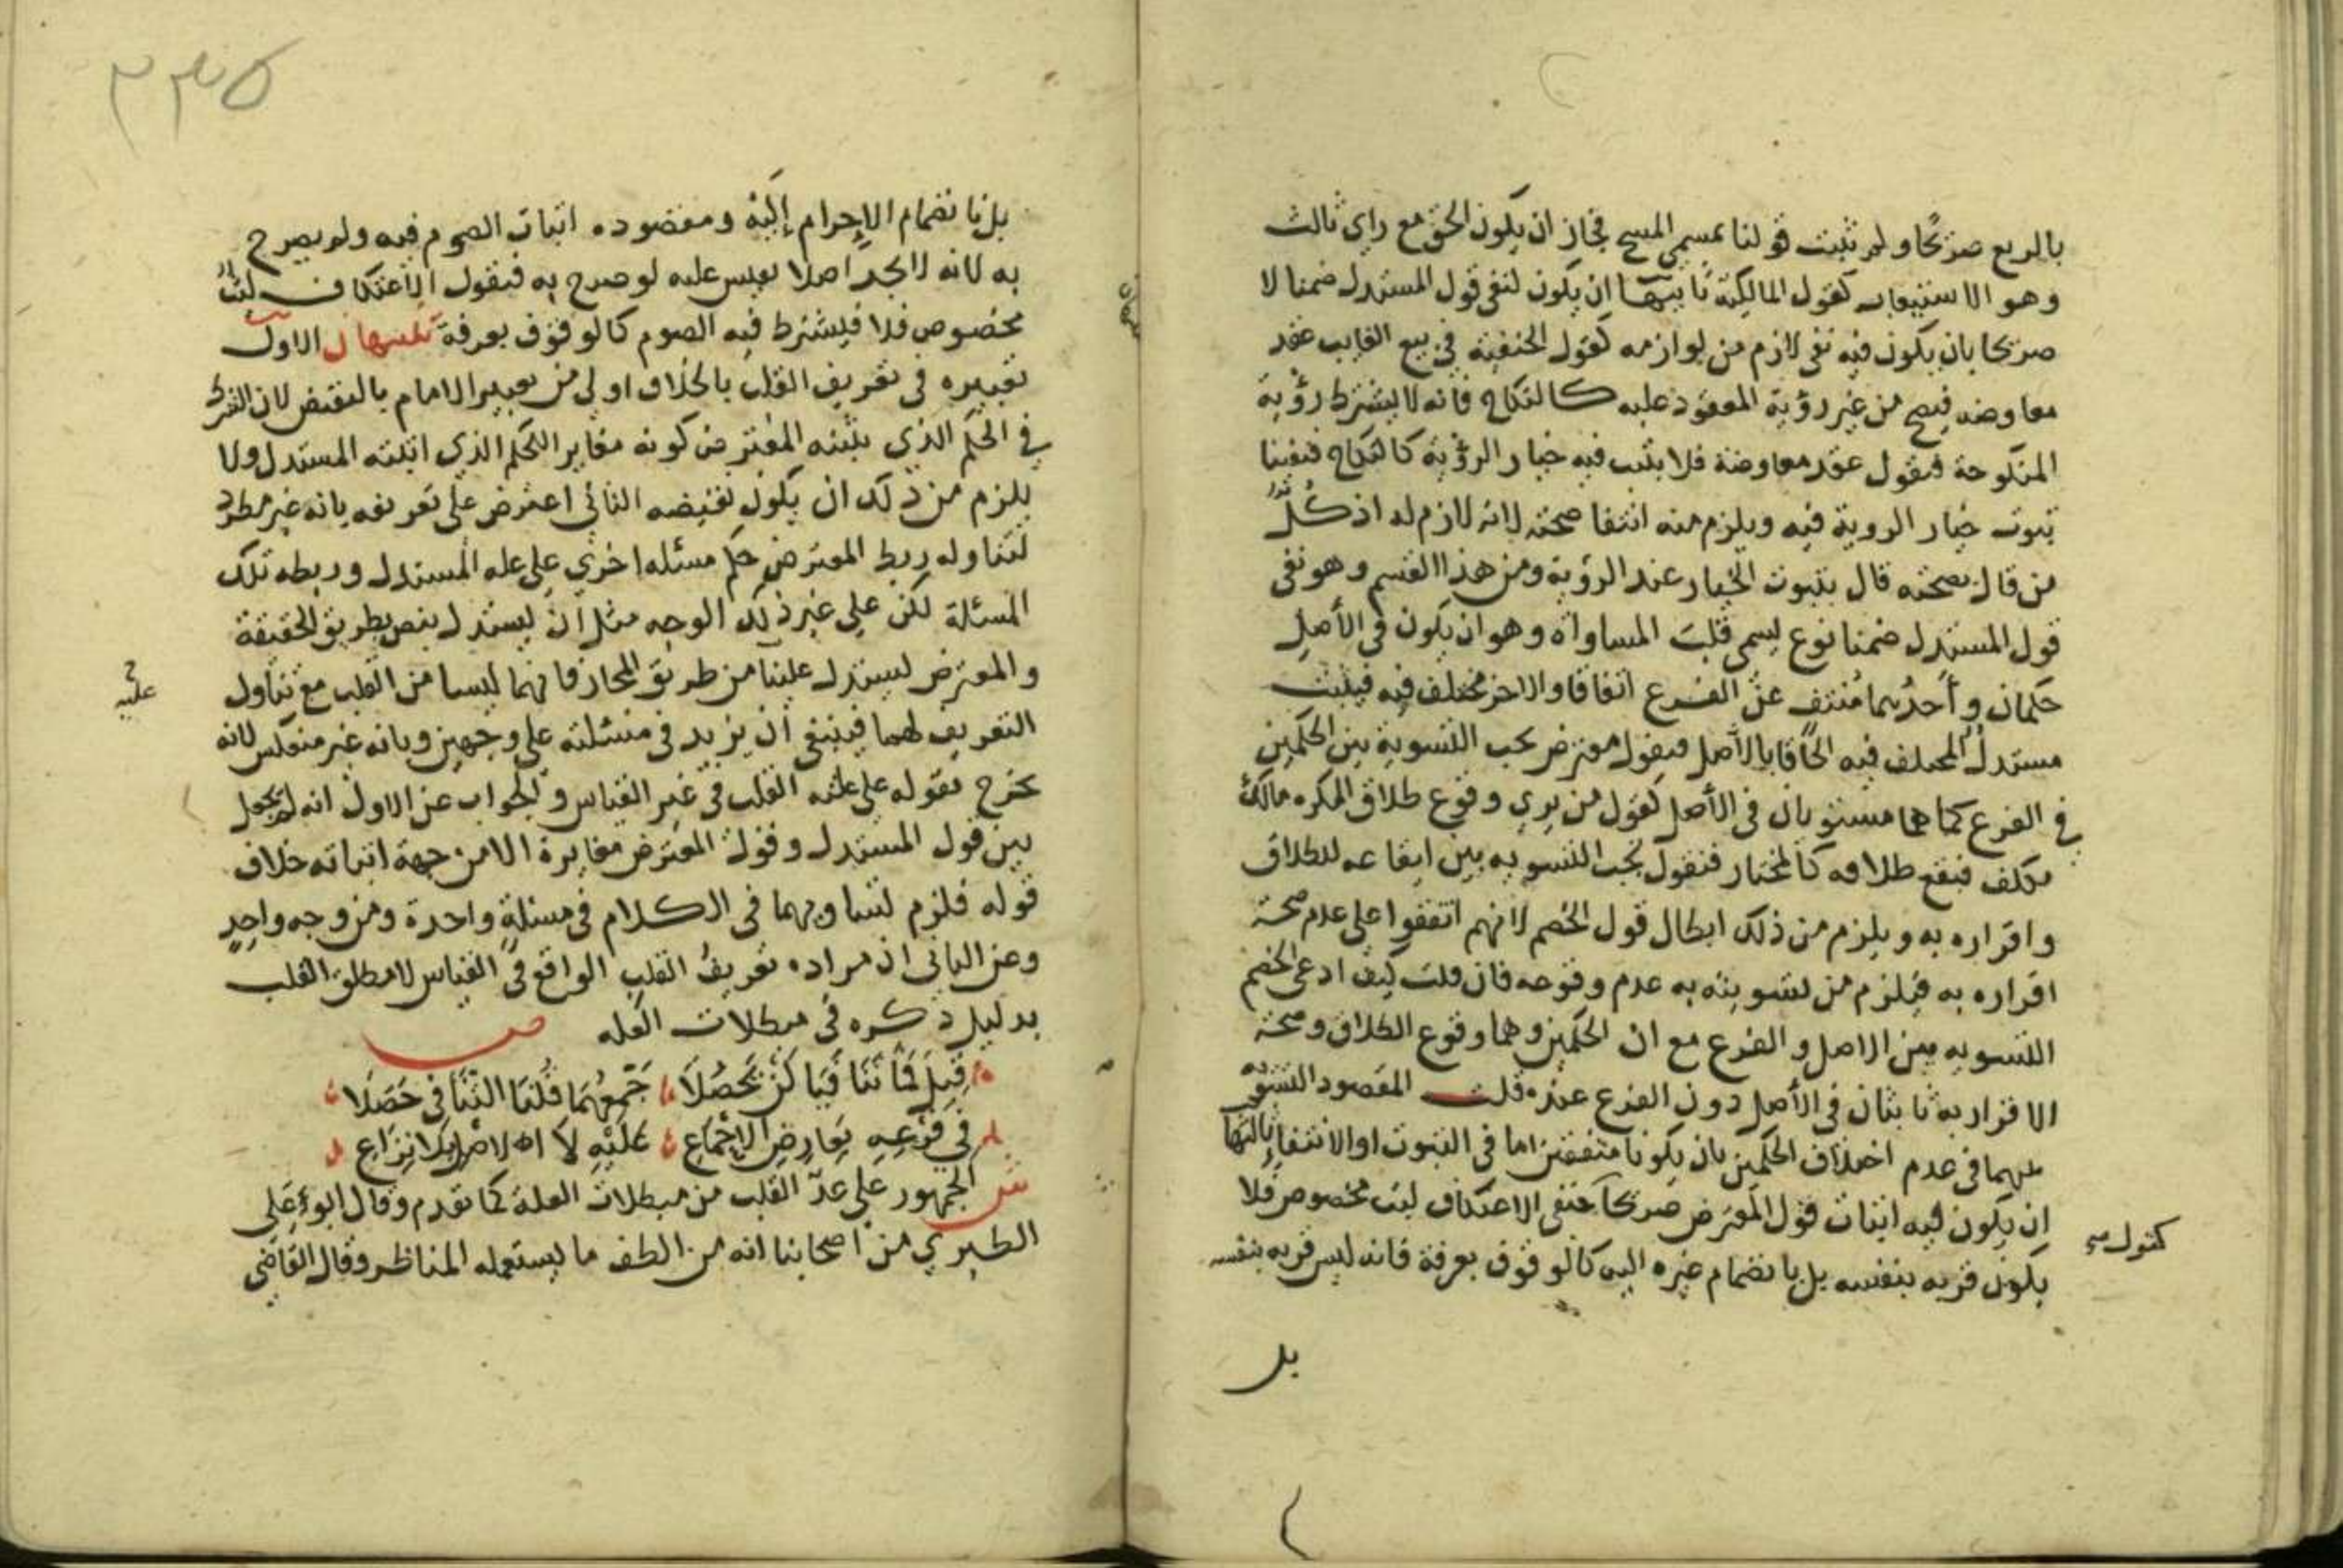 بالربع صريحا ولم تثبت قولنا بمسمي المسح فجاز ان يكون الحق مع راي ثالث
وهو الاستيعاب كقول المالكية ثانيها ان يكون لنفي قول المستدل ضمنا لا
صريحا بان يكون فيه نفي لازم من لوازمه كقول الحنفية في بيع الغايب عقد
معاوضه فيصح من غير رؤية المعقود عليه كالنكاح فانه لا يشترط رؤية
المنكوحة فيقول عقد معاوضة فلا يثبت فيه خيار الرؤية كالنكاح فنفينا
ثبوت خيار الروية فيه ويلزم منه انتفا صحته لانه لازم له اذ كل
من قال بصحته قال بثبوت الخيار عند الرؤية ومن هذا القسم وهو نفي
قول المستدل ضمنا نوع يسمي قلب المساواة وهو ان يكون في الأصل
حكمان وأحدهما منتف عن الفرع اتفاقا والاخر مختلف فيه فيثبت
مستدل المختلف فيه الحاقا بالأصل فيقول معترض يجب التسوية بين الحكمين
في الفرع كما هما مستويان في الأصل كقول من يري وقوع طلاق المكره مالك
مكلف فيقع طلاقه كالمختار فنقول يجب التسويه بين ايقاعه للطلاق
واقراره به ويلزم من ذلك ابطال قول الخصم لانهم اتفقوا علي عدم صحة
اقراره به فيلزم من تسويته به عدم وقوعه فان قلت كيف ادعي الخصم
التسويه بين الاصل والفرع مع ان الحكمين وهما وقوع الطلاق وصحة
الاقرار به ثابتان في الأصل دون الفرع عنده قلت المقصود التسويه
بينهما في عدم اختلاف الحكمين بان يكونا متفقين اما في الثبوت او الانتفا ثالثها
ان يكون فيه اثبات قول المعترض صريحا كحنفي الاعتكاف لبث مخصوص فلا
يكون قربه بنفسه بل بانضمام غيره اليه كالوقوف بعرفة فانه ليس قربه بنفسه
كقول
بل
٢٣٥
بل بانضمام الاحرام إليه ومقصوده اثبات الصوم فيه ولم يصرح
به لانه لا يجد اصلا يقيس عليه لو صرح به فنقول الاعتكاف لبث
مخصوص فلا فيشترط فيه الصوم كالوقوف بعرفة تنبيهان الاول
تعبيره في تعريف القلب بالخلاف اولي من تعبير الامام بالنقيض لان الشرط
في الحكم الذي يثبته المعترض كونه مغاير الحكم الذي اثبته المستدل ولا
يلزم من ذلك ان يكون نقيضه الثاني اعترض علي تعريفه بانه غير مطرد
لتناوله ربط المعترض حكم مسئله اخري علي عله المستدل وربطه تلك
المسئلة لكن علي غير ذلك الوجه مثل ان يستدل بنص بطريق الحقيقة
والمعترض يستدل علينا من طريق المجاز فانهما ليسا من القلب مع تناول
التعريف لهما فينبغي أن يزيد في مسئلته علي وجهين وبانه غير منعكس لانه
يخرج بقوله علي علته القلب في غير القياس والجواب عن الاول انه لم يجعل
بين قول المستدل وقول المعترض مغايرة الا من جهة اثباته خلاف
قوله فلزم تساويهما في الكلام في مسئلة واحدة ومن وجه واحد
وعن الثاني ان مراده تعريف القلب الواقع في القياس لا مطلق القلب
بدليل ذكره في مبطلات العله ص
قيل لها تنافيا لن يحصلا جمعهما قلنا التنافي حصلا
في فرعه بعارض الاجماع عليه لا الاصل بلا نزاع
ش الجمهور علي عد القلب من مبطلات العلة كما تقدم وقال ابو علي
الطبري من أصحابنا انه من الطف ما يستعمله المناظر وقال القاضي
عليه